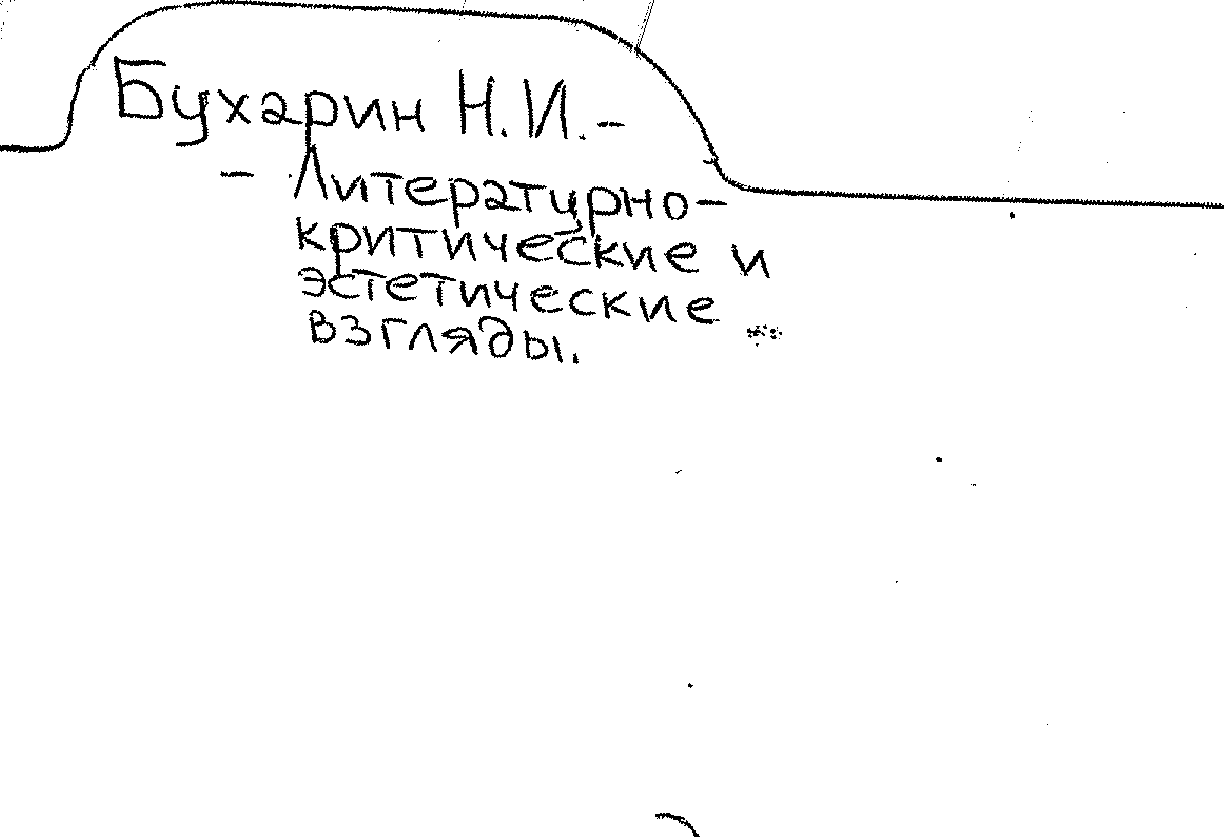 Бухарин Н.И. -
- Литературно-
критические и
эстетические
взгляды.